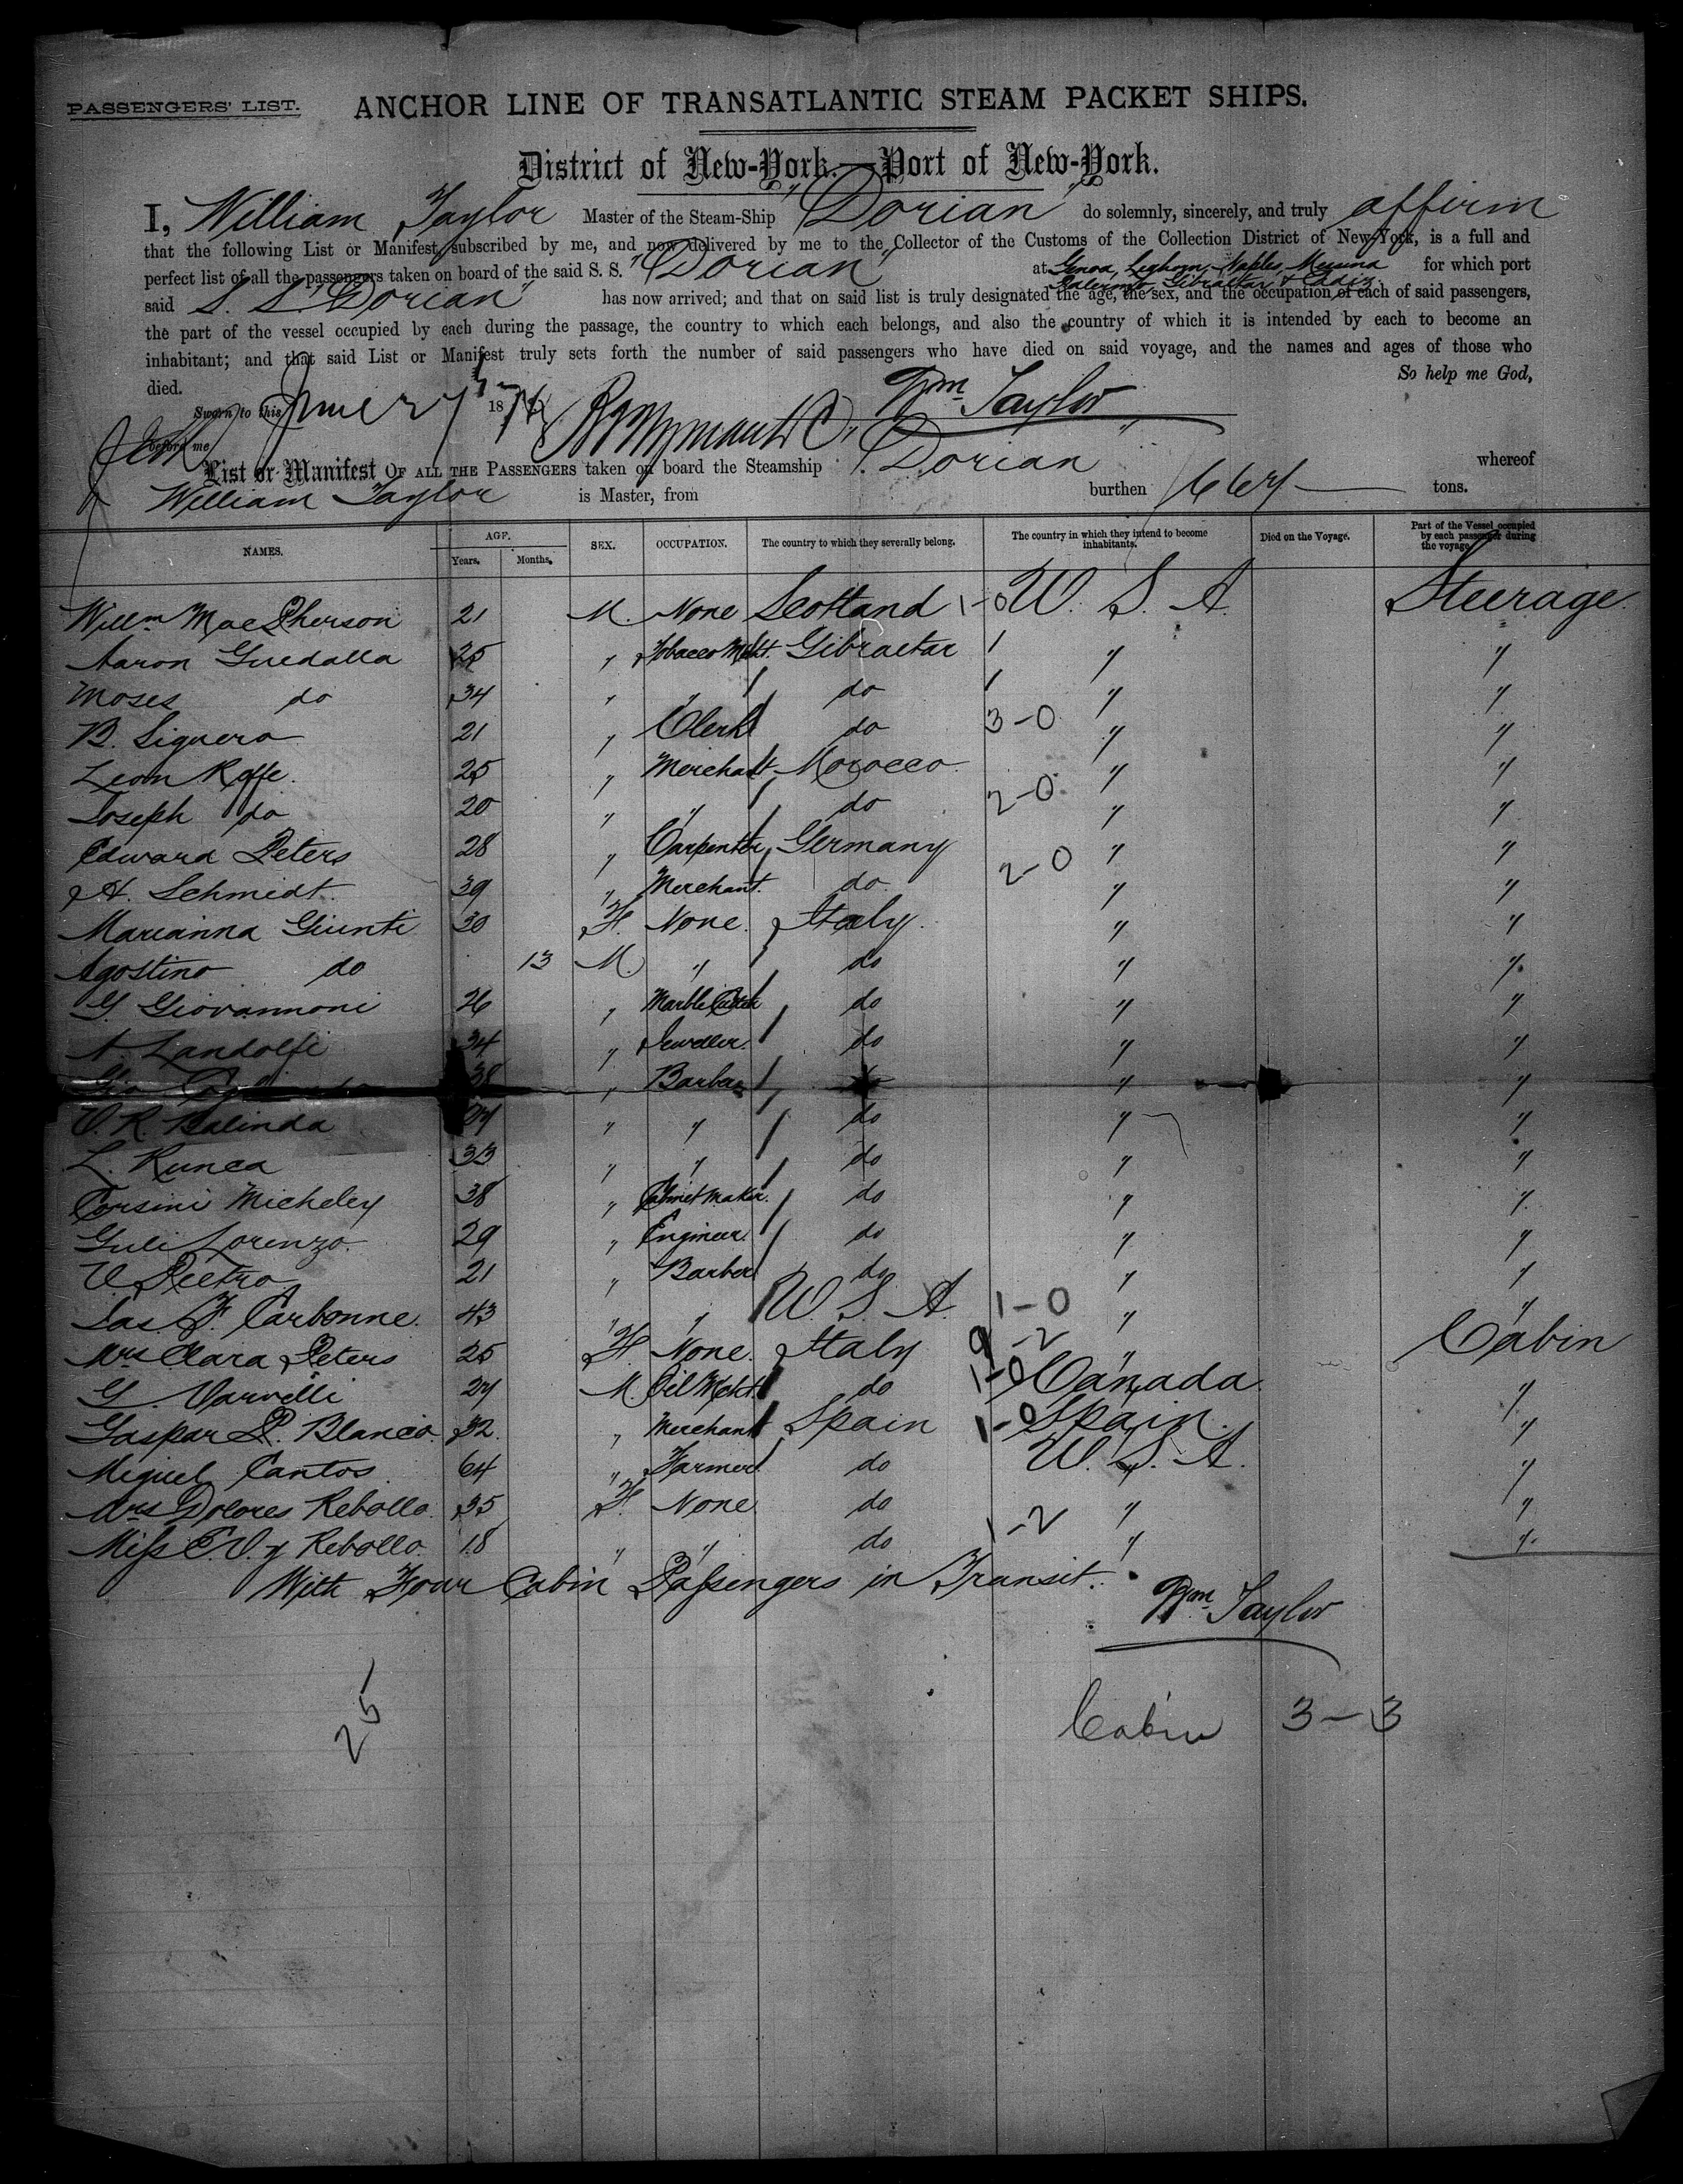 PASSENGERS' LIST. ANCHOR LINE OF TRANSATLANTIC STEAM PACKET SHIPS.
District of New-York.—Port of New-York.
I, William Taylor Master of the Steam-Ship "Dorian" do solemnly, sincerely, and truly affirm
that the following List or Manifest, subscribed by me, and now delivered by me to the Collector of the Customs of the Collection District of New-York, is a full and
perfect list of all the passengers taken on board of the said S. S. "Dorian" at Genoa, Leghorn, Naples, Messina for which port
Palermo, Gibraltar & Cadiz
said S. S. "Dorian" has now arrived; and that on said list is truly designated the age, the sex, and the occupation of each of said passengers,
the part of the vessel occupied by each during the passage, the country to which each belongs, and also the country of which it is intended by each to become an
inhabitant; and that said List or Manifest truly sets forth the number of said passengers who have died on said voyage, and the names and ages of those who
died. So help me God,
Sworn to this June 27 187 Wm Taylor
before me
List or Manifest OF ALL THE PASSENGERS taken on board the Steamship "Dorian" whereof
William Taylor is Master, from burthen tons.
NAMES. AGE. Years. Months. SEX. OCCUPATION. The country to which they severally belong. The country in which they intend to become inhabitants. Died on the Voyage. Part of the Vessel occupied by each passenger during the voyage.
Willm MacPherson 21 M. None Scotland 1-0 U. S. A. Steerage.
Aaron Guedalla 25 " Tobacco Mcht. Gibraltar 1 " "
Moses do 34 " " do 1 " "
B. Siguero 21 " Clerk do 3-0 " "
Leon Roffe. 25 " Merchant Morocco. " "
Joseph do 20 " " do 2-0 " "
Edward Peters 28 " Carpenter Germany " "
H. Schmidt. 39 " Merchant. do. 2-0 " "
Marianna Giunti 30 F. None. Italy. " "
Agostino do 13 M. " do " "
G. Giovannoni 26 " Marble Cutter do " "
A. Landolfi 34 " Jeweller. do " "
38 " Barber " "
V. R. Balinda 27 " " do " "
L. Runca 33 " " do " "
Corsini Micheley 38 " Cabinet Maker. do " "
Guli Lorenzo. 29 " Engineer. do " "
V. Pietro 21 " Barber do " "
Jas. F. Carbonne. 43 " " U. S. A. 1-0 " "
Mrs Clara Peters 25 F. None. Italy 9-2 " Cabin
G. Varvelli 27 M. Oil Mcht. do 1-0 Canada "
Gaspar P. Blanco. 32. " Merchant Spain 1-0 Spain. "
Miguel Cantos 64 " Farmer do U. S. A. "
Mrs Dolores Rebollo. 35 F. None. do " "
Miss C. V. y Rebollo. 18 " " do 1-2 " "
With Four Cabin Passengers in Transit.
Wm Taylor
25
Cabin 3-3